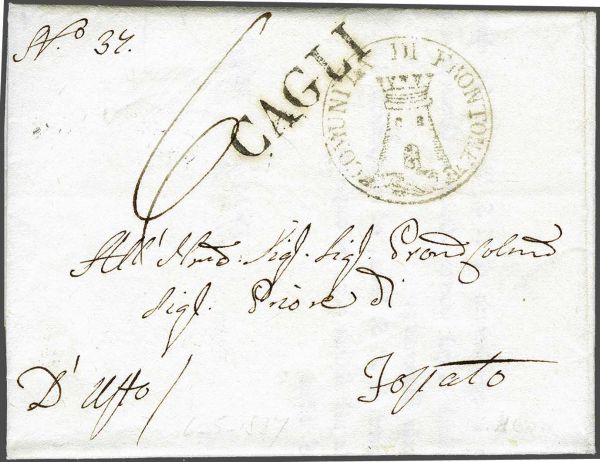 N.o 37.
6
CAGLI
COMUNITA DI FRONTONE
All' Illmo: Sig. Sig. Pron Colmo
Sig. Priore di
D' Uffo / Fossato
6-5-1827